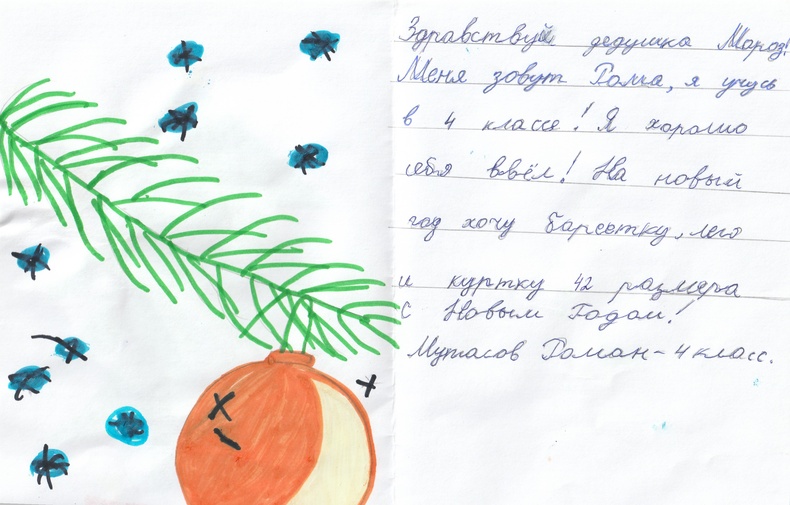 Здравствуй дедушка Мороз!
Меня зовут Рома, я учусь
в 4 классе! Я хорошо
себя ввёл! На новый
год хочу барсетку, лего
и куртку 42 размера
С Новым Годом!
Мутасов Роман - 4 класс.